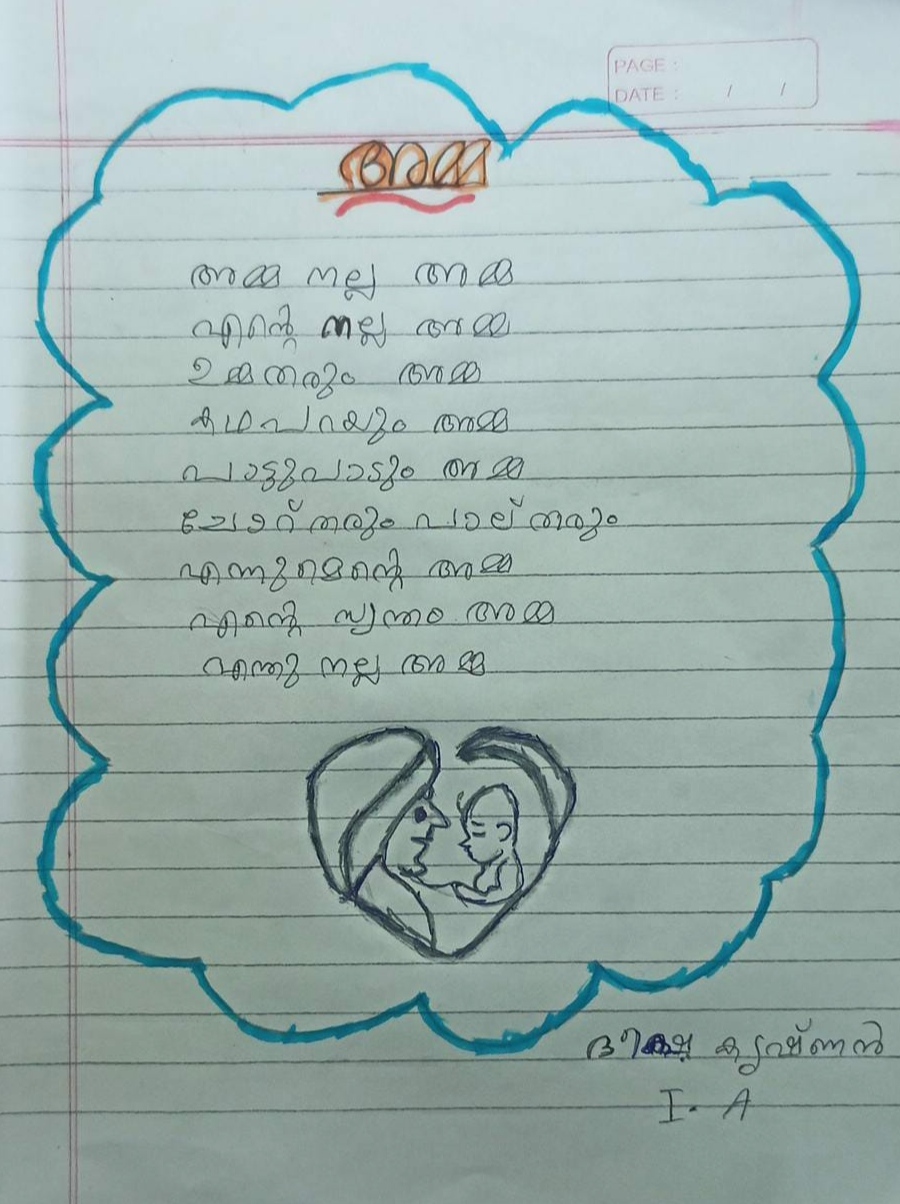 PAGE :
DATE : / /
അമ്മ
അമ്മ നല്ല അമ്മ
എന്റെ നല്ല അമ്മ
ഉമ്മതരും അമ്മ
കഥപറയും അമ്മ
പാട്ടുപാടും അമ്മ
ചോറ് തരും പാല് തരും
എന്നുമെന്റെ അമ്മ
എന്റെ സ്വന്തം അമ്മ
എന്തു നല്ല അമ്മ
ദീക്ഷ കൃഷ്ണൻ
I. A